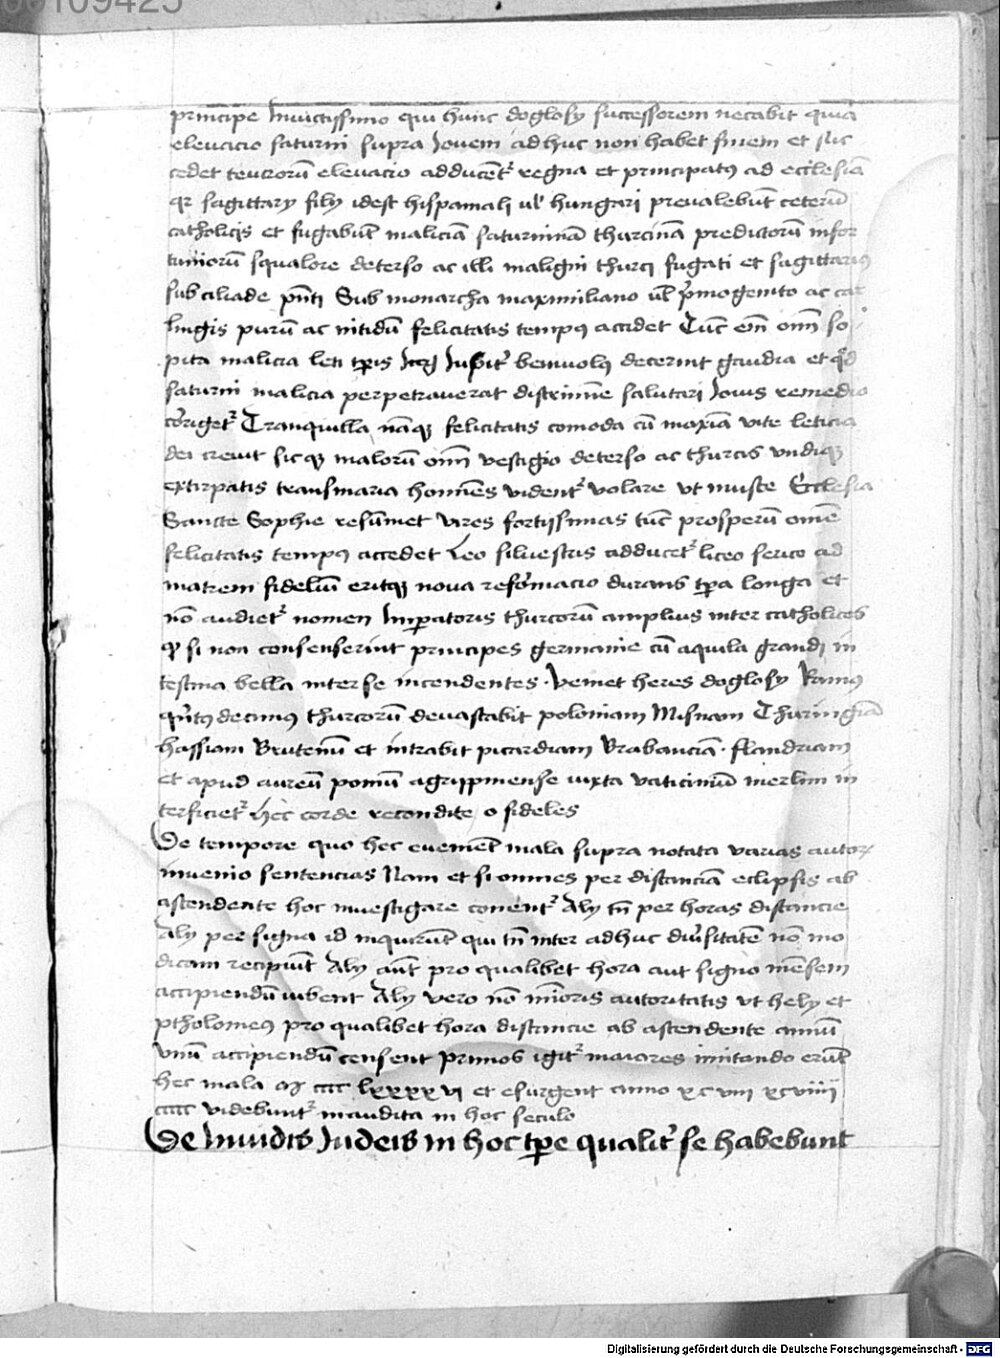 00109425
principe Invictissimo qui hunc doglosy successorem necabit quia
elevacio saturni supra Jovem adhuc non habet finem et suc
cedet teucrorū elevacio adducent᷑ regna et principatꝰ ad ecclesiā
qr sagittary filij idest hispamali ul hungari prevalebūt ceterū
catholicis et fugabūt maliciā saturninā thurcinā predictorū infor
tuniorū squalore deterso ac illi maligni thurci fugati et sagittariꝰ
sub ciliade pn̄ti Sub monarcha maximiliano ul p̄mogenito ac
lingis purū ac nitidū felicitatis tempꝰ accidet Tūc em̄ om̄ so
pita malicia leti tp̄is Jupit᷑ benivolꝰ decernit gaudia et qd̄
saturni malicia perpetraverat discrimīe salutari Jovis remedio
corriget᷑ Tranquilla nāqꝫ felicitatis comoda cū maxīa vite leticia
dei crevit sicqꝫ malorū om̄ vestigio deterso ac thurcis undiqꝫ
extirpatis transmaria homīes vident᷑ volare ut muste Ecclesia
Sancte Sophie resūmet vires fortissimas tūc prosperū om̄e
felicitatis tempꝰ accedet Leo silvestris adducet᷑ liceo serico ad
matrem fidelium eritqꝫ nova reformacio durans tp̄a longa et
nō audiet᷑ nomen Imp̄atoris thurcorū amplius inter catholicos
qꝫ si non consenserint principes germanie cū aquila grandi in
testina bella inter se incendentes · veniet heres doglosy Ramꝰ
quītꝰdecimꝰ thurcorū devastabit poloniam Misnam Thuringiā
hassiam Brutenū et intrabit picardiam Brabanciā · flandriam
et apud aureū pomū agrippinense iuxta vaticiniū merlini in
terficiet᷑ hec corde recondite o fideles
De tempore quo hec evenient mala supra notata varias autorꝝ
invenio sentencias Nam et si omnes per distanciā eclipsis ab
ascendente hoc investigare conent᷑ Aly tn̄ per horas distancie
Aly per signa id inquirūt qui tn̄ inter adhuc div̄sitatē nō mo
dicam recipiūt Aly aūt pro qualibet hora aut signo mēsem
accipiendū iubent Aly vero nō mīoris autoritatis ut hely et
ptholomeꝰ pro qualibet hora distancie ab ascendente annū
unū accipiendū censent primos igit᷑ maiores imitando erūt
hec mala cccc lxxxxvi et esurgent anno xcviii xcviiii
cccc videbunt᷑ inaudita in hoc seculo
De Invidis Iudeis in hoc tp̄e qualit᷑ se habebunt
Digitalisierung gefördert durch die Deutsche Forschungsgemeinschaft - DFG